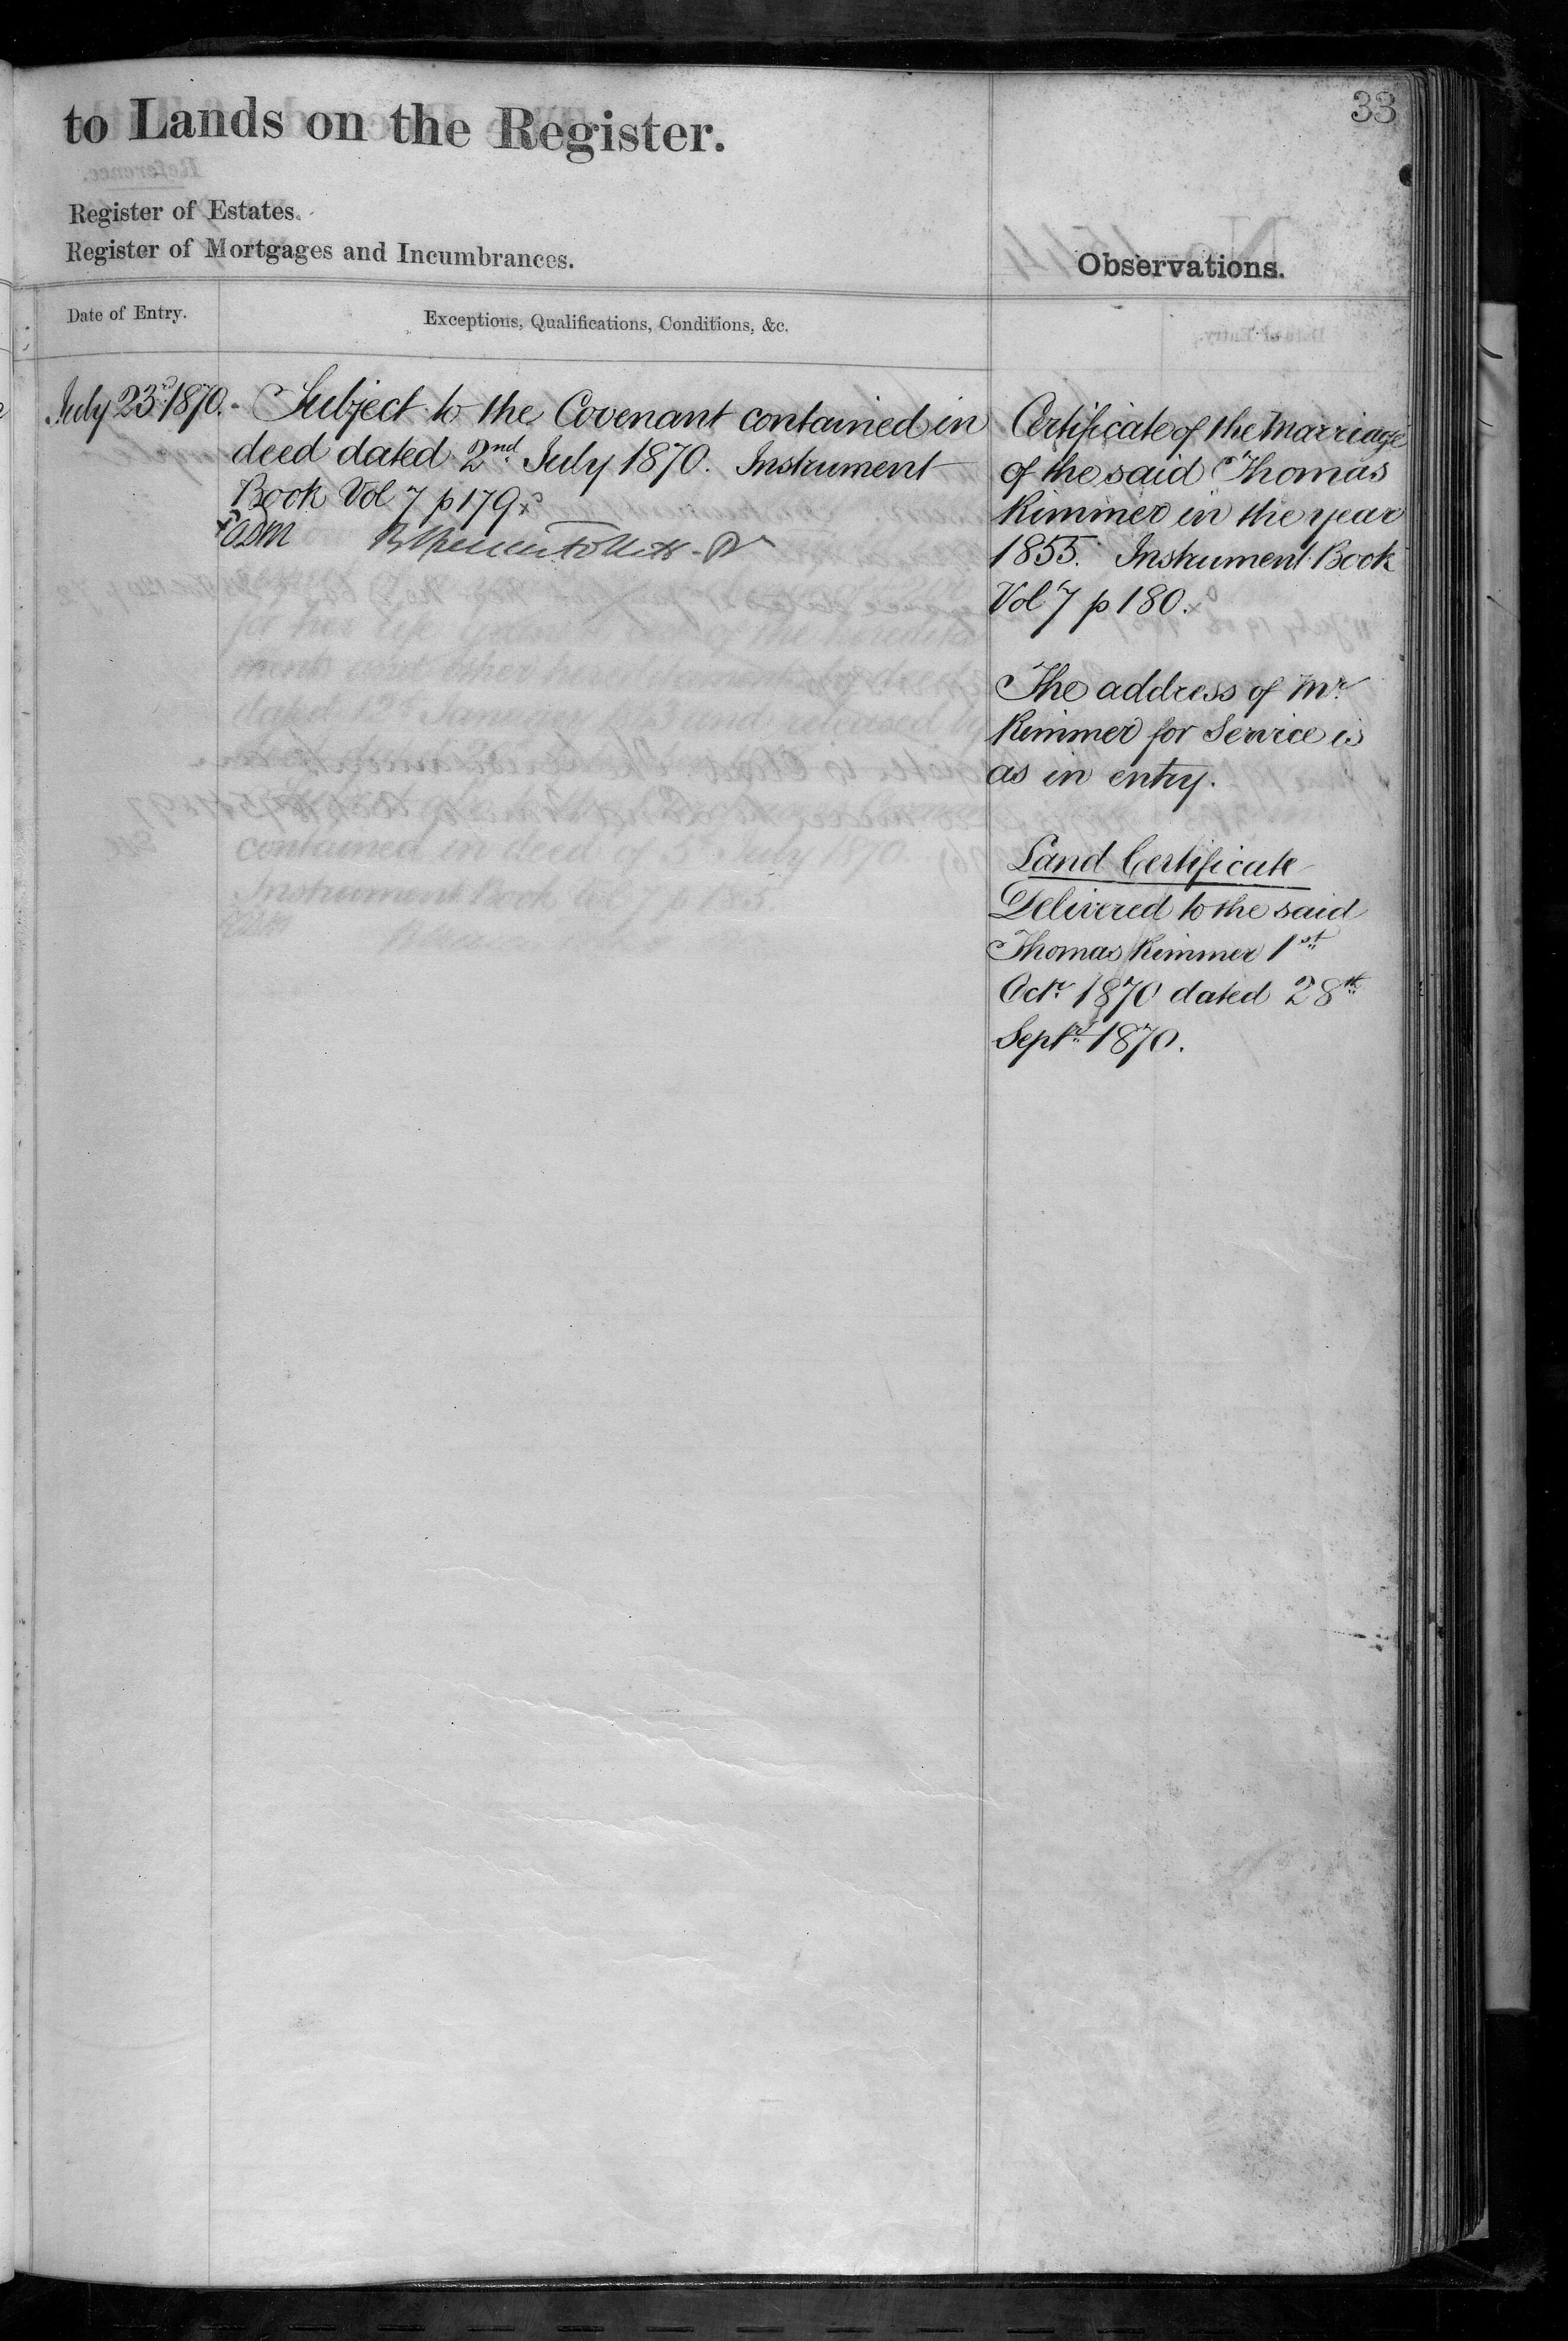 33
to Lands on the Register.
Register of Estates.
Register of Mortgages and Incumbrances.
Observations.
Date of Entry.
Exceptions, Qualifications, Conditions, &c.
July 23rd 1870.
Subject to the Covenant contained in
deed dated 2nd July 1870. Instrument
Book Vol 7 p 179
Certificate of the Marriage
of the said Thomas
Rimmer in the year
1855. Instrument Book
Vol 7 p 180.
The address of Mr
Rimmer for Service is
as in entry.
Land Certificate
Delivered to the said
Thomas Rimmer 1st
Octr 1870 dated 28th
Septr 1870.
contained in deed of 5th July 1870
Instrument Book Vol 7 p 185.